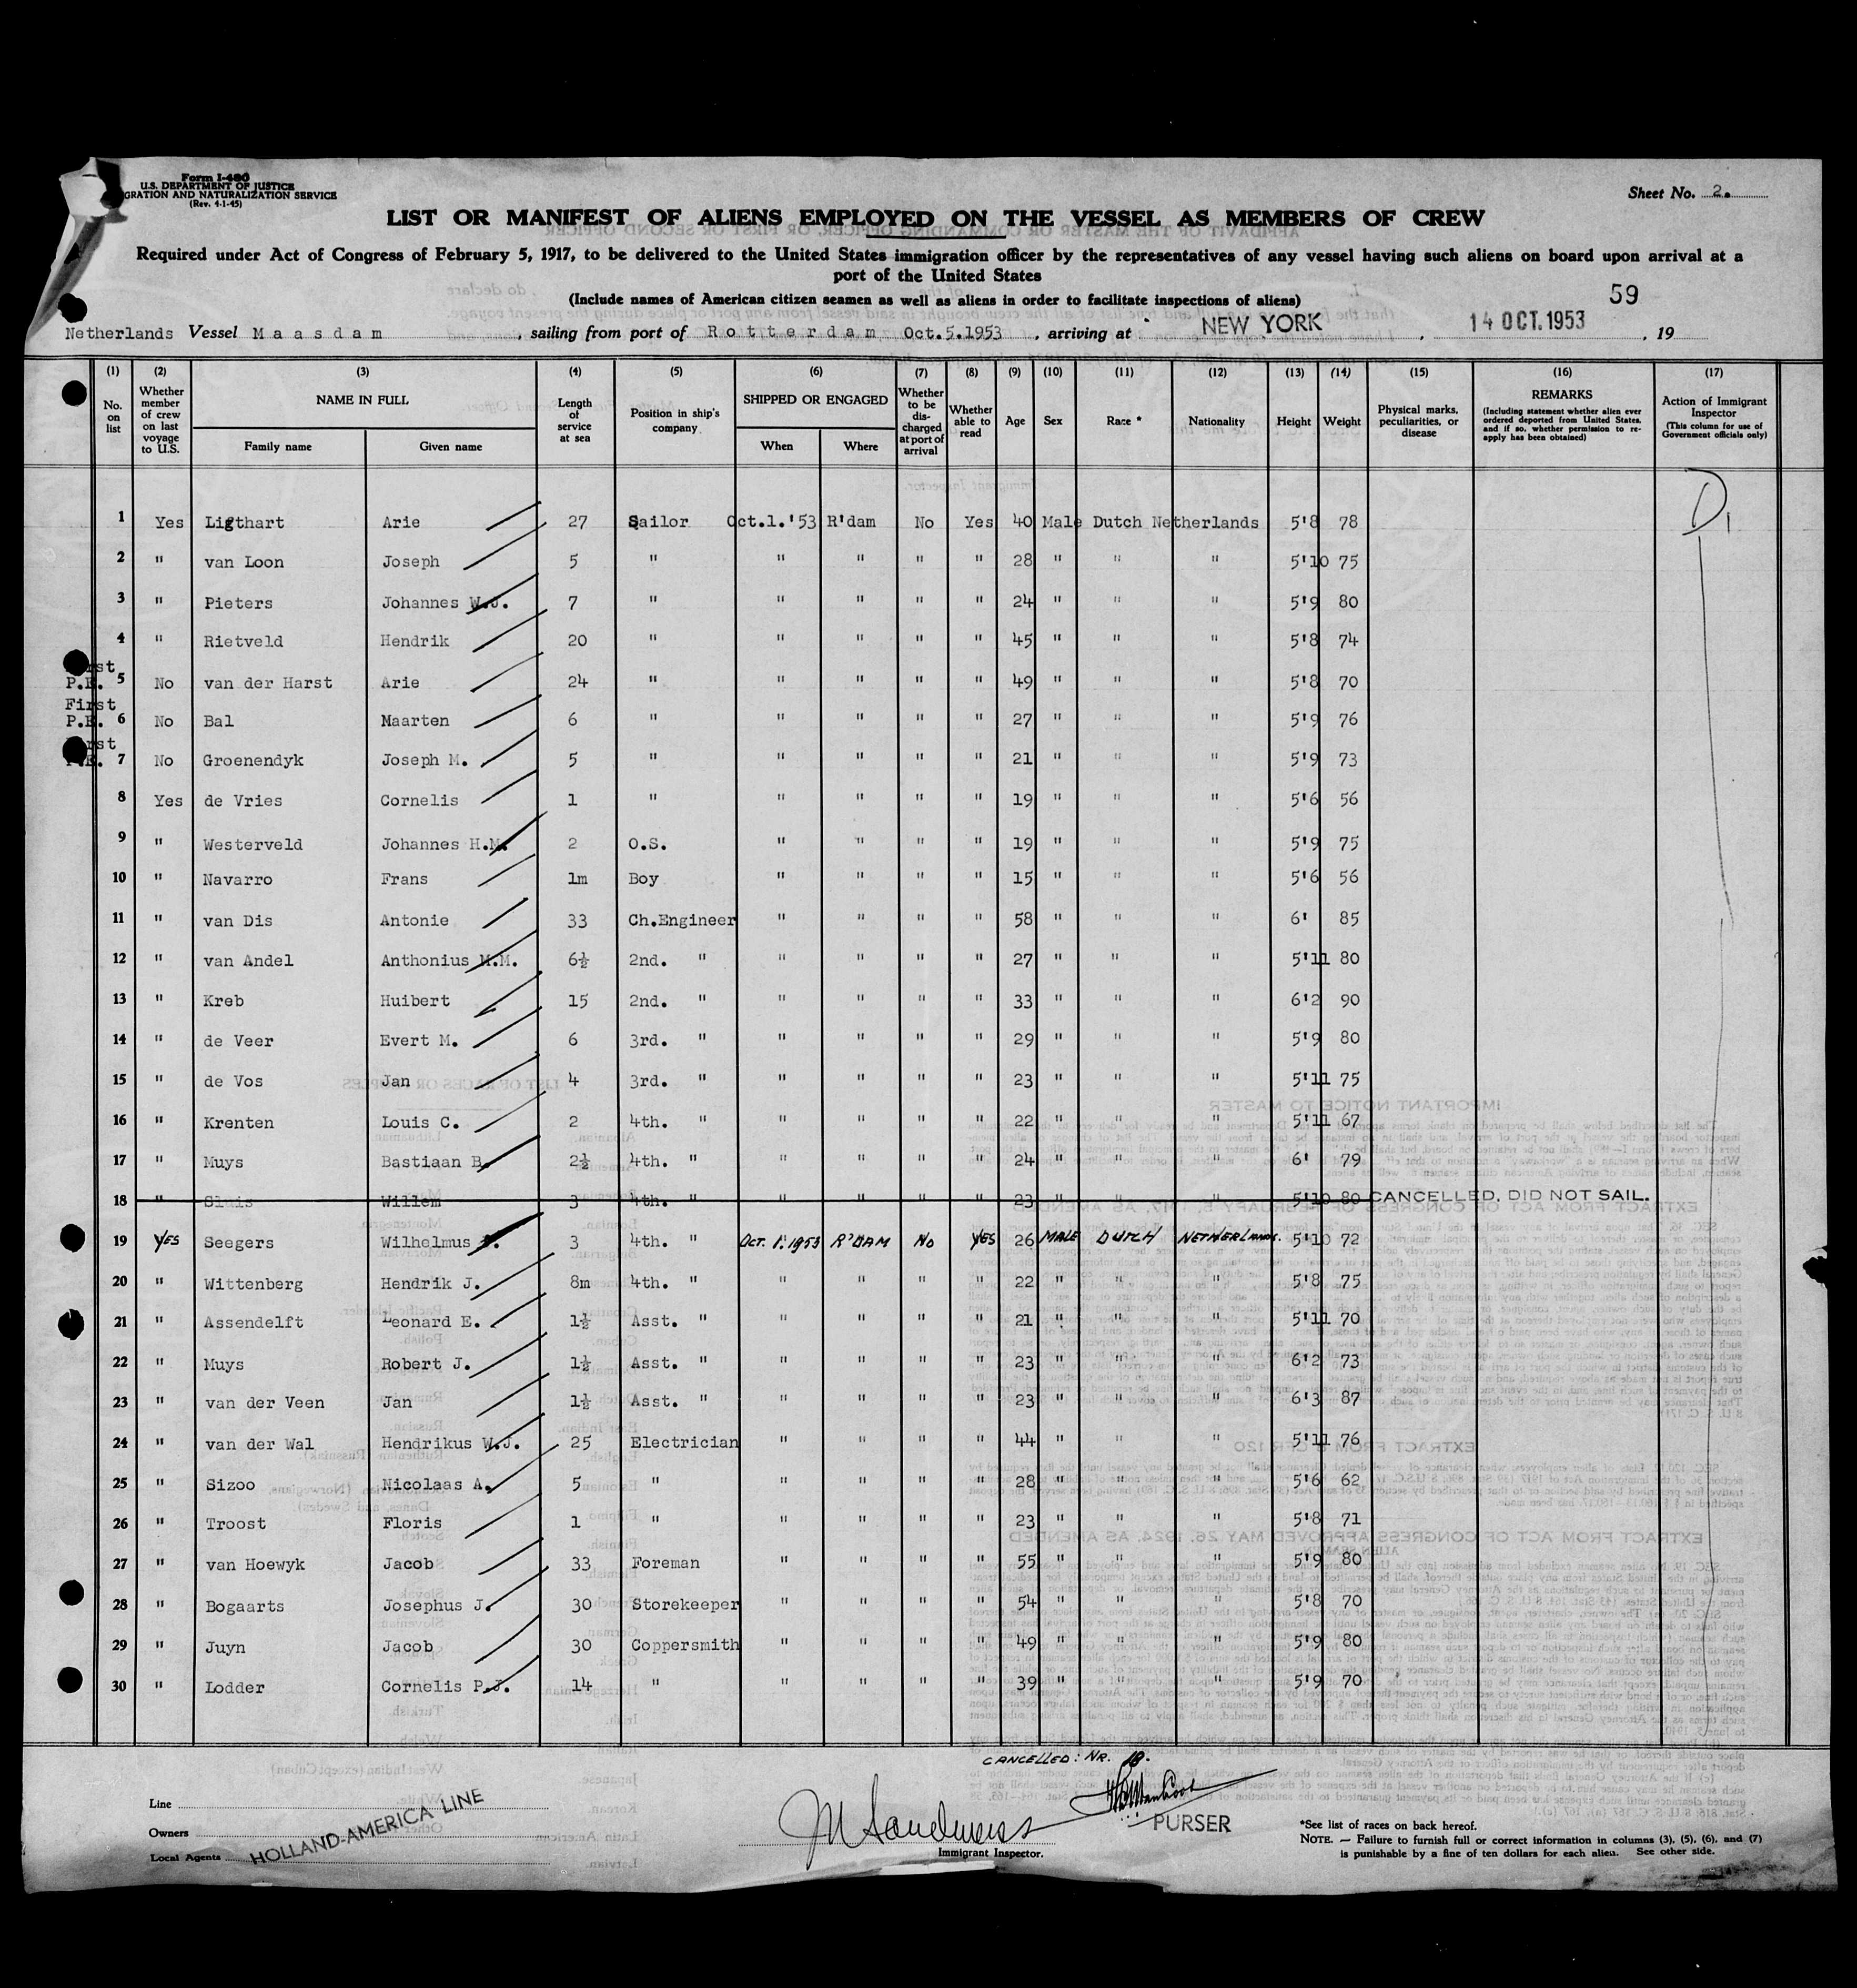 Form I-480
U.S. DEPARTMENT OF JUSTICE
GRATION AND NATURALIZATION SERVICE
(Rev. 4-1-45)
Sheet No. 2.
LIST OR MANIFEST OF ALIENS EMPLOYED ON THE VESSEL AS MEMBERS OF CREW
Required under Act of Congress of February 5, 1917, to be delivered to the United States immigration officer by the representatives of any vessel having such aliens on board upon arrival at a
port of the United States
(Include names of American citizen seamen as well as aliens in order to facilitate inspections of aliens)
59
Netherlands Vessel Maasdam, sailing from port of Rotterdam Oct.5.1953, arriving at NEW YORK, 14 OCT.1953, 19
(1) (2) (3) (4) (5) (6) (7) (8) (9) (10) (11) (12) (13) (14) (15) (16) (17)
No. on list
Whether member of crew on last voyage to U.S.
NAME IN FULL
Family name
Given name
Length of service at sea
Position in ship's company
SHIPPED OR ENGAGED
When
Where
Whether to be discharged at port of arrival
Whether able to read
Age
Sex
Race *
Nationality
Height
Weight
Physical marks, peculiarities, or disease
REMARKS
(Including statement whether alien ever ordered deported from United States, and if so, whether permission to re-apply has been obtained)
Action of Immigrant Inspector
(This column for use of Government officials only)
1 Yes Ligthart Arie 27 Sailor Oct.1.'53 R'dam No Yes 40 Male Dutch Netherlands 5'8 78
2 " van Loon Joseph 5 " " " " " 28 " " " 5'10 75
3 " Pieters Johannes W.J. 7 " " " " " 24 " " " 5'9 80
4 " Rietveld Hendrik 20 " " " " " 45 " " " 5'8 74
First P.E. 5 No van der Harst Arie 24 " " " " " 49 " " " 5'8 70
First P.E. 6 No Bal Maarten 6 " " " " " 27 " " " 5'9 76
First P.E. 7 No Groenendyk Joseph M. 5 " " " " " 21 " " " 5'9 73
8 Yes de Vries Cornelis 1 " " " " " 19 " " " 5'6 56
9 " Westerveld Johannes H.M. 2 O.S. " " " " 19 " " " 5'9 75
10 " Navarro Frans 1m Boy " " " " 15 " " " 5'6 56
11 " van Dis Antonie 33 Ch.Engineer " " " " 58 " " " 6' 85
12 " van Andel Anthonius M.M. 6½ 2nd. " " " " " 27 " " " 5'11 80
13 " Kreb Huibert 15 2nd. " " " " " 33 " " " 6'2 90
14 " de Veer Evert M. 6 3rd. " " " " " 29 " " " 5'9 80
15 " de Vos Jan 4 3rd. " " " " " 23 " " " 5'11 75
16 " Krenten Louis C. 2 4th. " " " " " 22 " " " 5'11 67
17 " Muys Bastiaan B. 2½ 4th. " " " " " 24 " " " 6' 79
18 " Sluis Willem 3 4th. " " " " " 23 " " " 5'10 80 CANCELLED, DID NOT SAIL.
19 YES Seegers Wilhelmus 3 4th. " OCT. 1.1953 R'DAM NO YES 26 MALE DUTCH NETHERLANDS. 5'10 72
20 " Wittenberg Hendrik J. 8m 4th. " " " " " 22 " " " 5'8 75
21 " Assendelft Leonard E. 1½ Asst. " " " " " 21 " " " 5'11 70
22 " Muys Robert J. 1½ Asst. " " " " " 23 " " " 6'2 73
23 " van der Veen Jan 1½ Asst. " " " " " 23 " " " 6'3 87
24 " van der Wal Hendrikus W.J. 25 Electrician " " " " 44 " " " 5'11 76
25 " Sizoo Nicolaas A. 5 " " " " " 28 " " " 5'6 62
26 " Troost Floris 1 " " " " " 23 " " " 5'8 71
27 " van Hoewyk Jacob 33 Foreman " " " " 55 " " " 5'9 80
28 " Bogaarts Josephus J. 30 Storekeeper " " " " 54 " " " 5'8 70
29 " Juyn Jacob 30 Coppersmith " " " " 49 " " " 5'9 80
30 " Lodder Cornelis P.J. 14 " " " " " 39 " " " 5'9 70
CANCELLED: NR. 18.
Line
Owners
Local Agents
HOLLAND-AMERICA LINE
PURSER
Immigrant Inspector.
*See list of races on back hereof.
NOTE. — Failure to furnish full or correct information in columns (3), (5), (6), and (7)
is punishable by a fine of ten dollars for each alien. See other side.